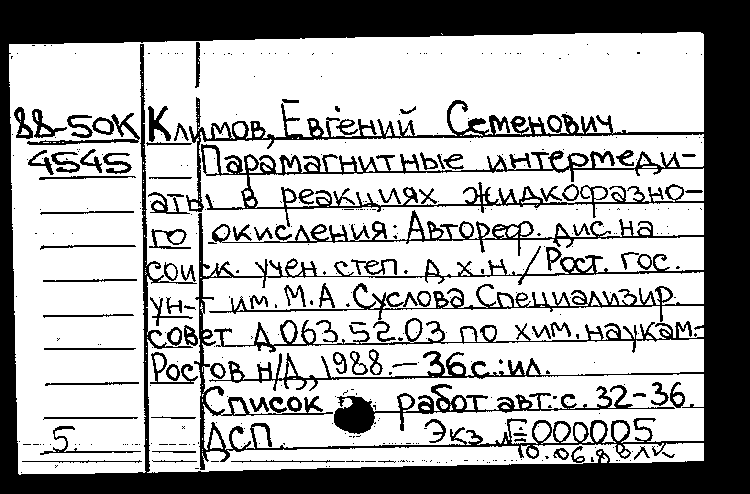 88-50К Климов, Евгений Семенович.
4545 Парамагнитные интермеди-
аты в реакциях жидкофазно-
го окисления: Автореф. дис. на
соиск. учен. степ. д.х.н. / Рост. гос.
ун-т им. М.А. Суслова. Специализир.
совет Д 063.52.03 по хим. наукам.-
Ростов н/Д, 1988. — 36 с.: ил.
Список работ авт.: с. 32-36.
5. ДСП. Экз. № 000005
10.06.88 ЛК